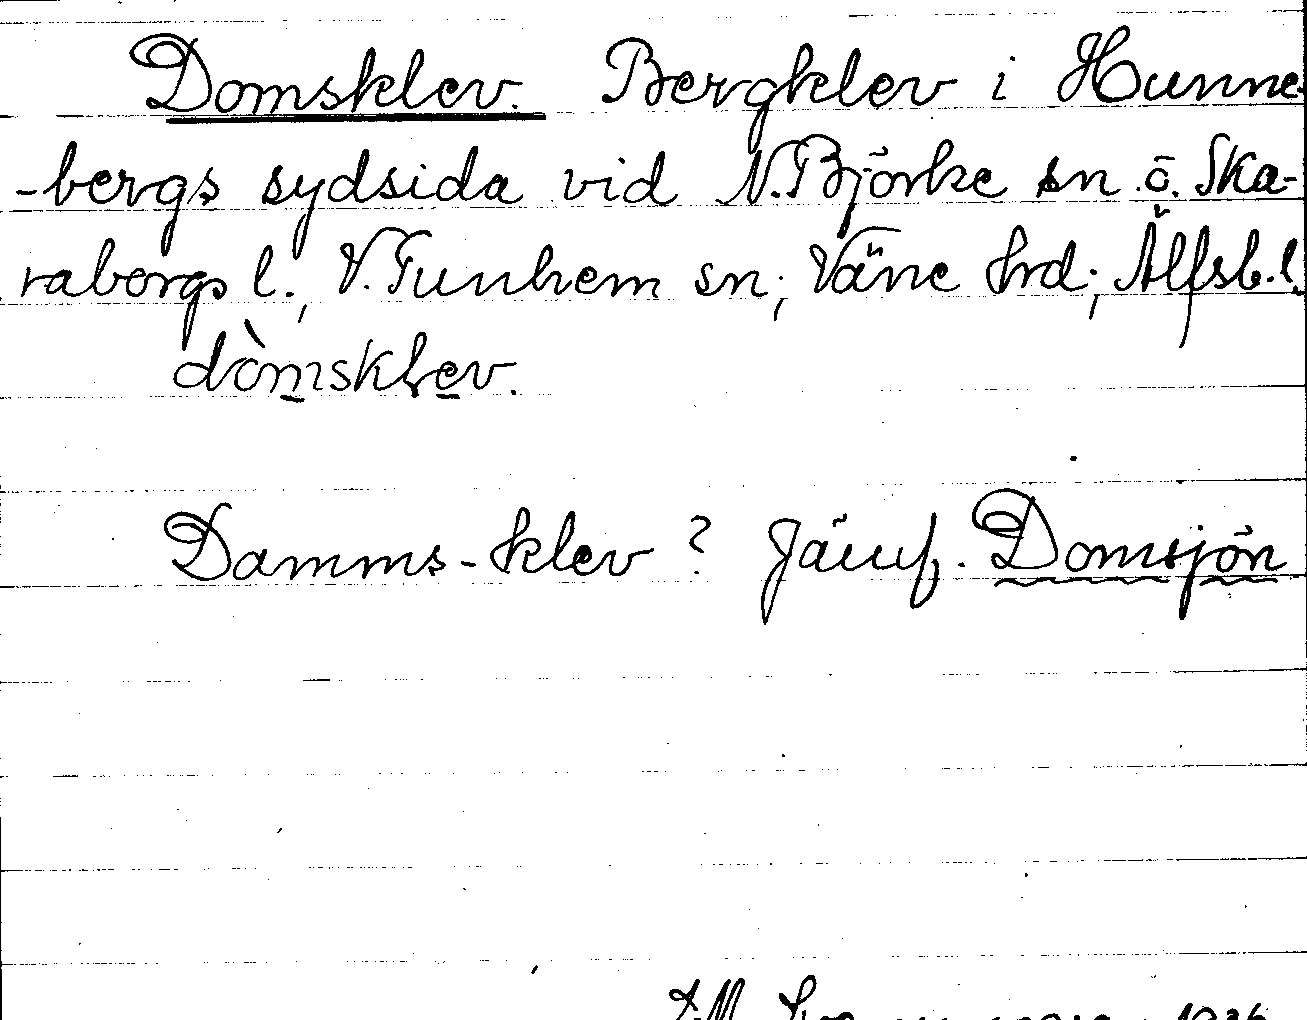 Domsklev. Bergklev i Hunne-
-bergs sydsida vid N.Björke sn o. Ska-
raborgs l., V.Tunhem sn; Väne hrd; Älfsb.l.
dòmsklev.
Damms-klev? Jämf. Domsjön